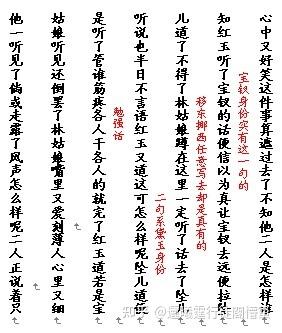 心中又好笑这件事算遮过去了不知他二人是怎样
宝钗身份实有这一句的
知红玉听了宝钗的话便信以为真让宝钗去远便拉坠
移东挪西任意写去却是真有的
儿道了不得了林姑娘蹲在这里一定听了话去了坠儿
二句系黛玉身份
听说也半日不言语红玉又道这可怎么样呢坠儿道便
勉强话
是听了管谁筋疼各人干各人的就完了红玉道若是宝
姑娘听见还倒罢了林姑娘嘴里又爱刻薄人心里又细
他一听见了倘或走露了风声怎么样呢二人正说着只